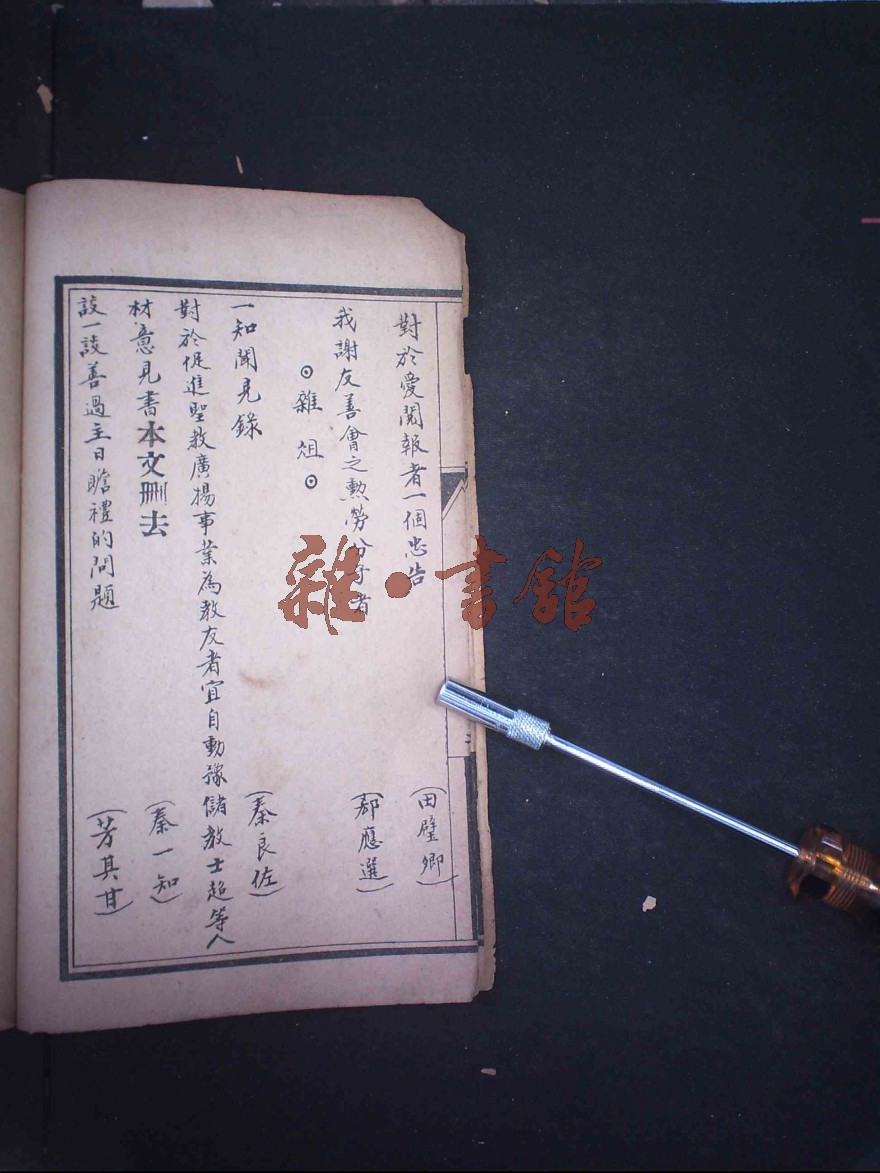 對於愛閱報者一個忠告
(田璧卿)
我謝友善會之勲勞
者
(郝應選)
⊙雜俎⊙
一知聞見錄
(秦良佐)
對於促進聖教廣揚事業為教友者宜自動豫儲教士超等人
材意見書本文刪去
(秦一知)
設一設善過主日瞻禮的問題
(芳其甘)
雜·書館